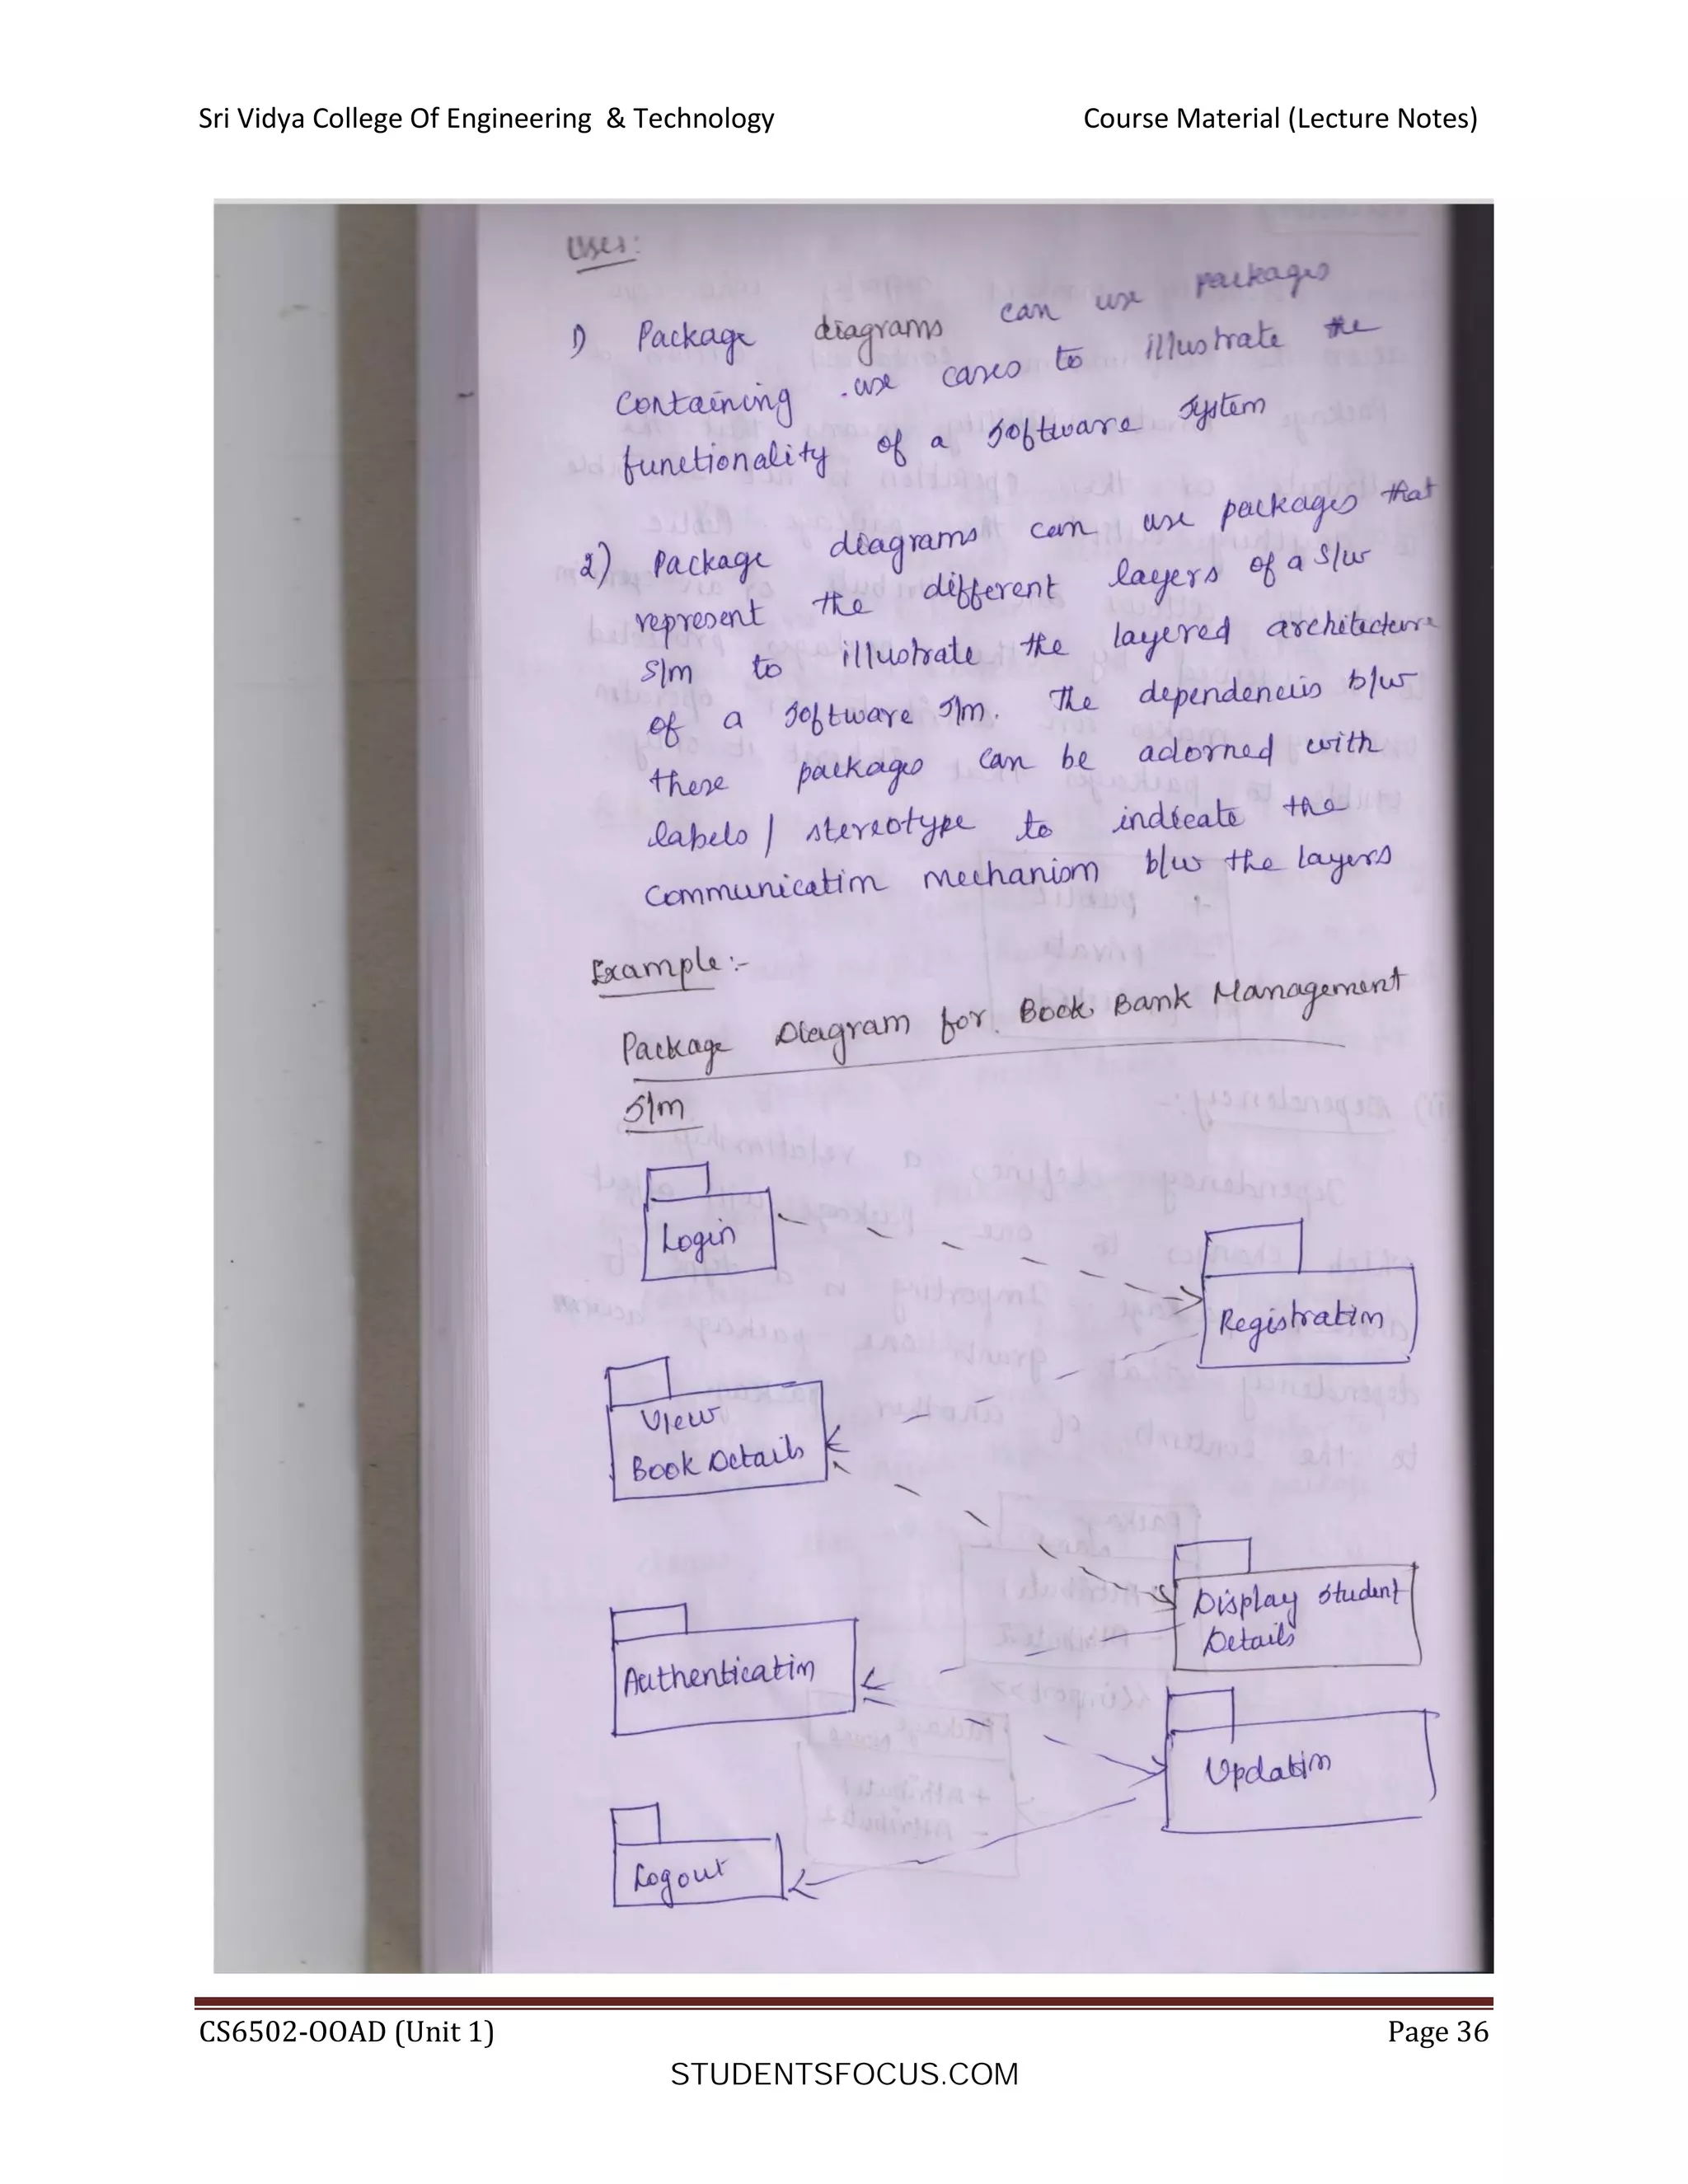 Sri Vidya College Of Engineering & Technology Course Material (Lecture Notes)
Uses:
1) Package diagrams can use packages
containing use cases to illustrate the
functionality of a software system
2) Package diagrams can use packages that
represent the different layers of a s/w
s/m to illustrate the layered architecture
of a software s/m. The dependencies b/w
these packages can be adorned with
labels / stereotype to indicate the
communication mechanism b/w the layers
Example :-
Package Diagram for Book Bank Management
S/m
Login
Registration
View
Book Details
Display Student
Details
Authentication
Updation
Logout
CS6502-OOAD (Unit 1) Page 36
STUDENTSFOCUS.COM